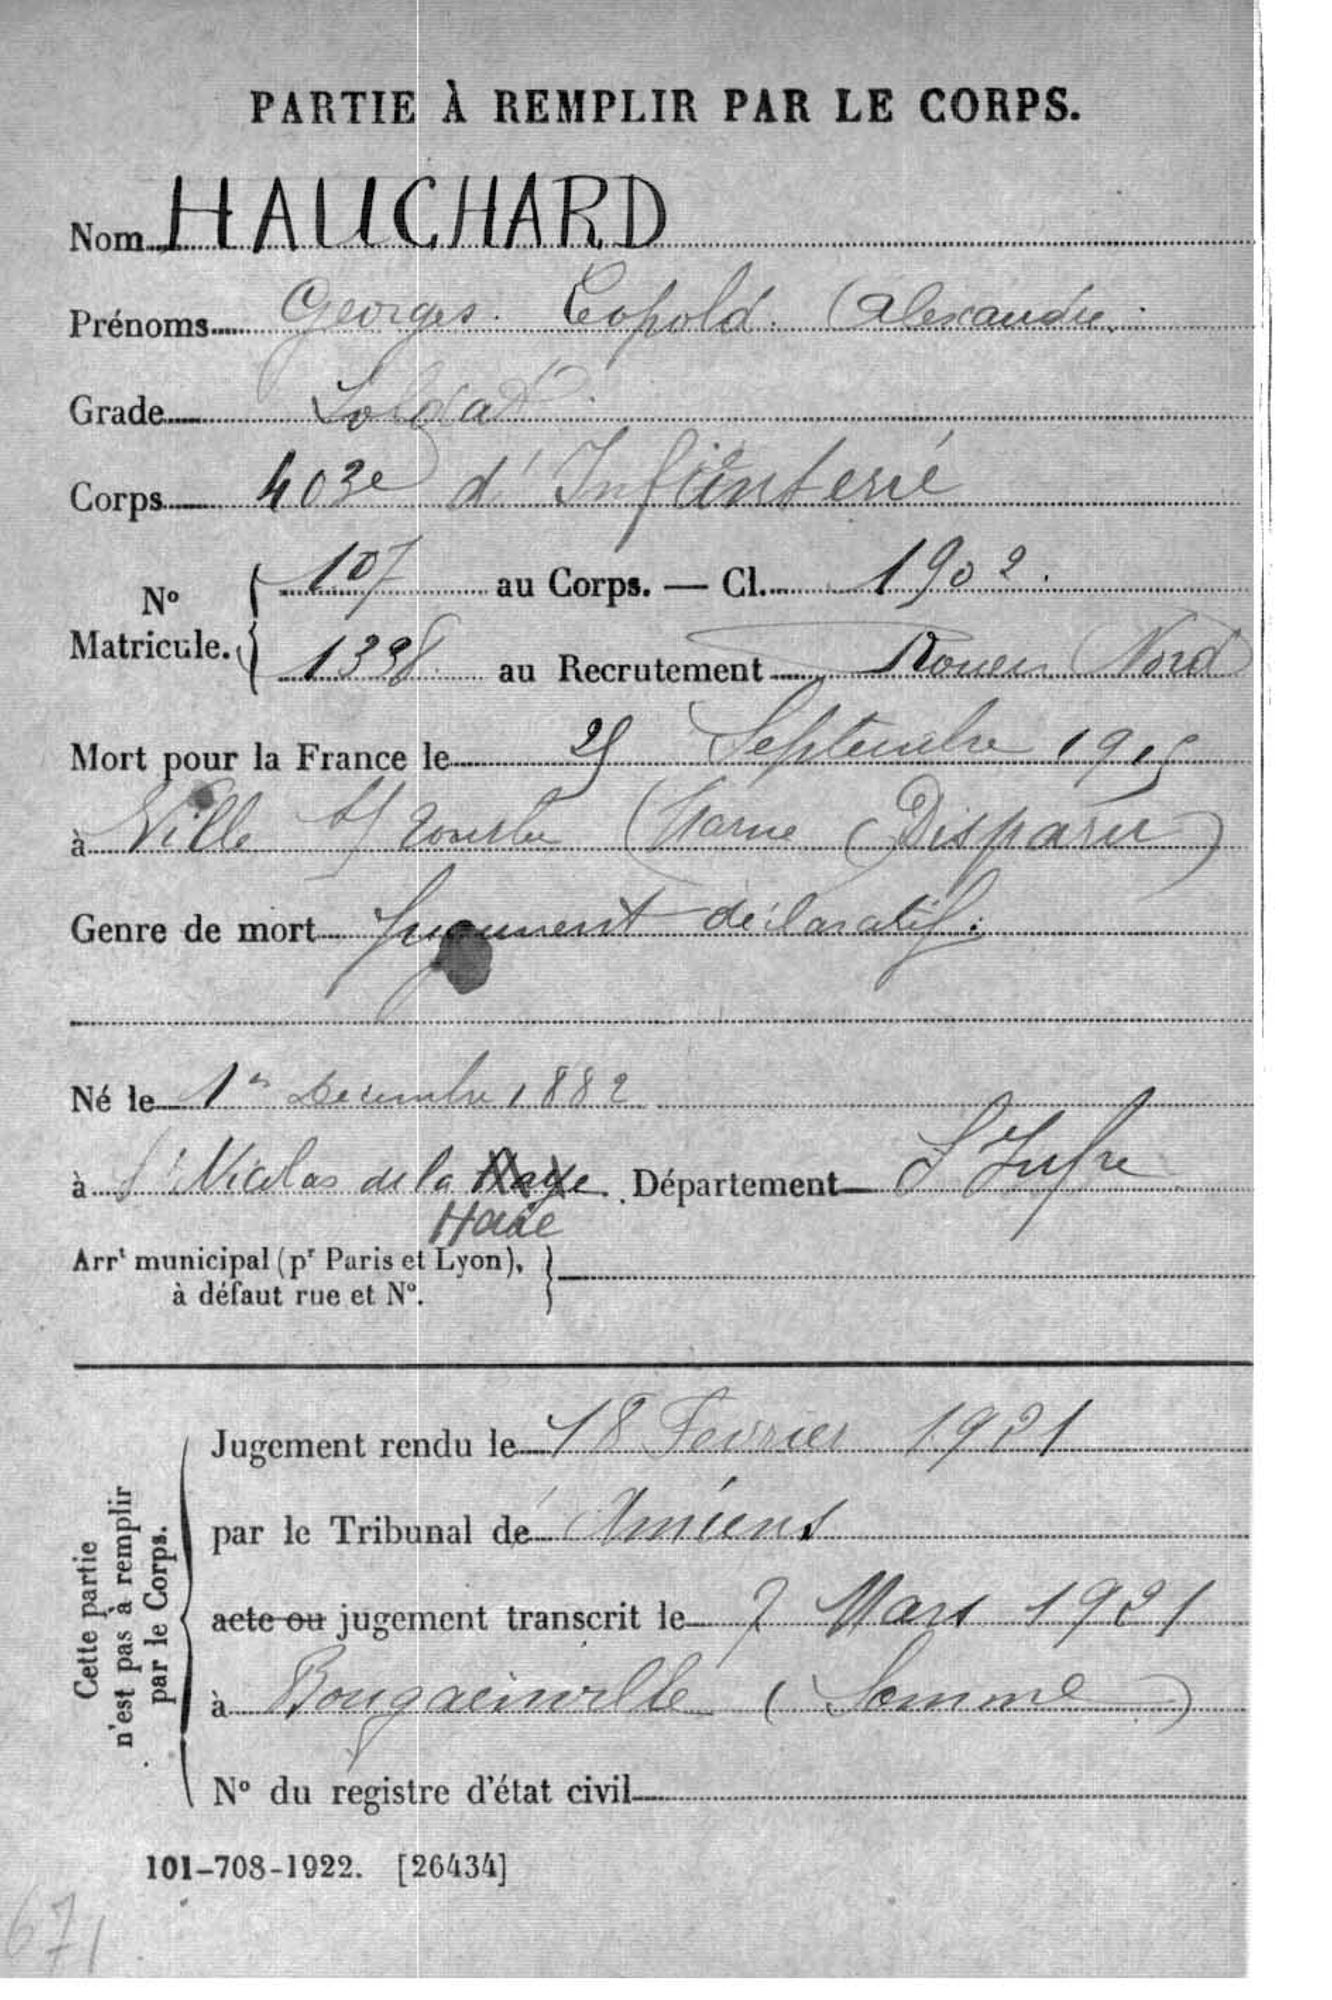 PARTIE À REMPLIR PAR LE CORPS.
Nom HAUCHARD
Prénoms Georges. Léopold. Alexandre.
Grade Soldat.
Corps 403e d'Infanterie
No Matricule. 107 au Corps. — Cl. 1902.
1398 au Recrutement Rouen Nord
Mort pour la France le 25 Septembre 1915
à Ville s/ Tourbe (Marne (Disparu)
Genre de mort Jugement déclaratif.
Né le 1er Décembre 1882
à St Nicolas de la Haye Département S Infre
Haie
Arrt municipal (pr Paris et Lyon),
à défaut rue et No.
Cette partie
n'est pas à remplir
par le Corps.
Jugement rendu le 18 Fevrier 1921
par le Tribunal de Amiens
acte ou jugement transcrit le 7 Mars 1921
à Bougainville (Somme)
No du registre d'état civil
101-708-1922. [26434]
671